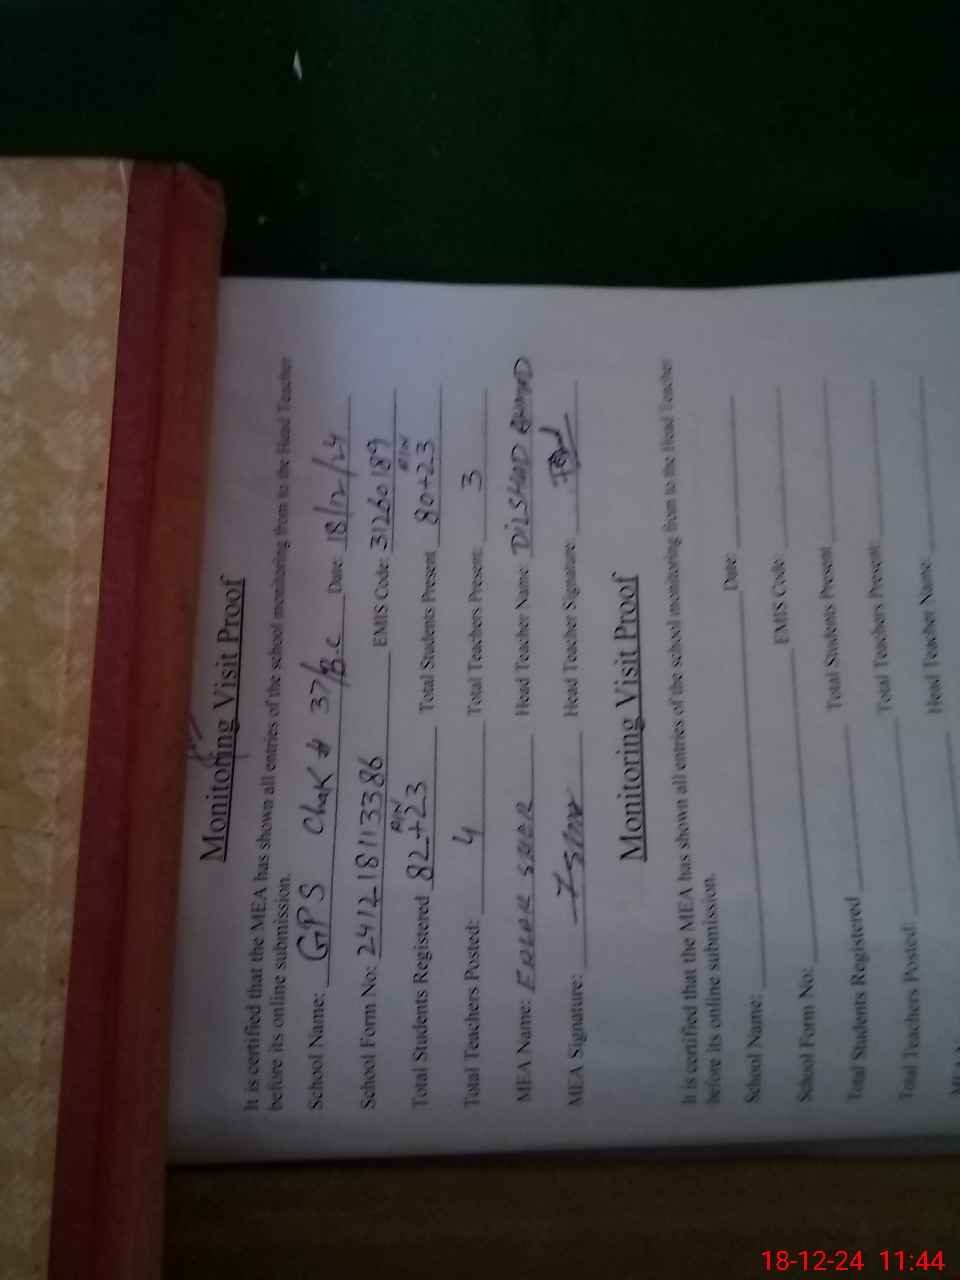 Monitoring Visit Proof
It is certified that the MEA has shown all entries of the school monitoring from to the Head Teacher
before its online submission.
School Name: GPS Chak # 37/B.C Date: 18/12/24
School Form No: 2412181133386 EMIS Code: 31260189
Total Students Registered 82+23 Total Students Present 80+23
Total Teachers Posted: 4 Total Teachers Present: 3
MEA Name: SHER Head Teacher Name: DILSHAD AHMAD
MEA Signature: Head Teacher Signature:
Monitoring Visit Proof
It is certified that the MEA has shown all entries of the school monitoring from to the Head Teacher
before its online submission.
School Name: Date:
School Form No: EMIS Code:
Total Students Registered Total Students Present
Total Teachers Posted: Total Teachers Present:
Head Teacher Name:
18-12-24 11:44